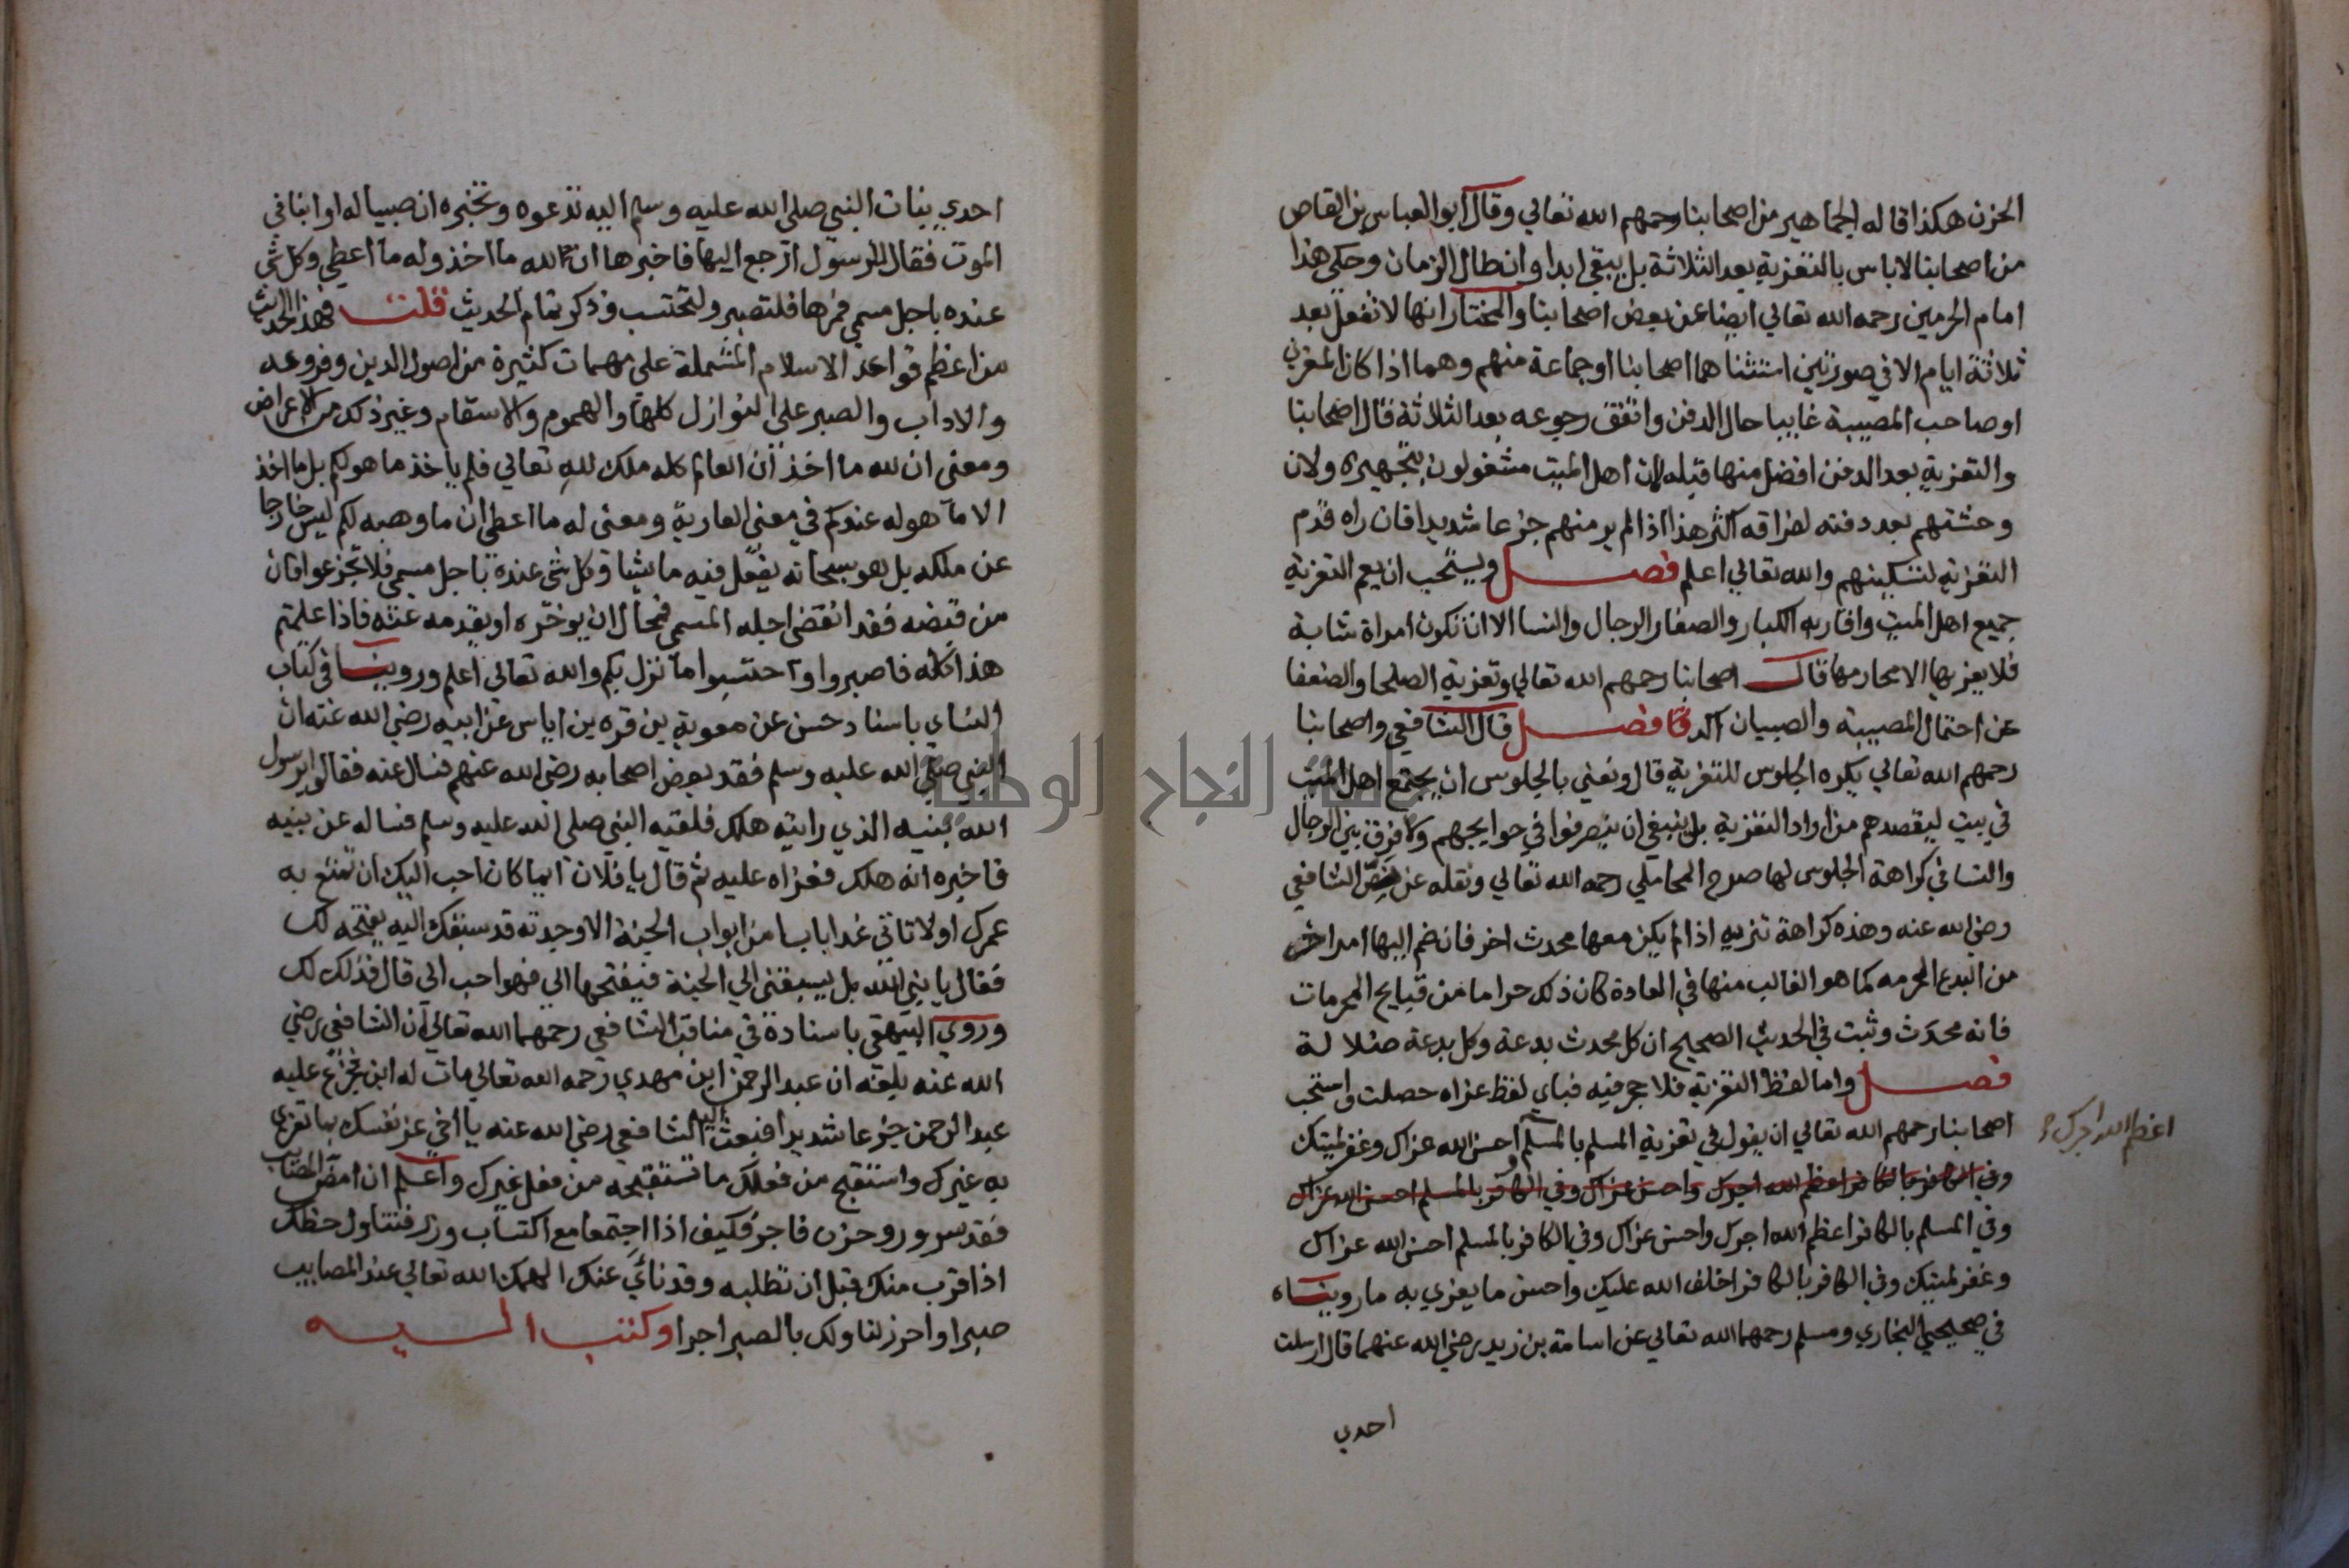 الحزن هكذا قاله الجماهير من اصحابنا رحمهم الله تعالي وقال ابو العباس بن القاص
من اصحابنا لا باس بالتعزية بعد الثلاثة بل يبقي ابدا وان طال الزمان وحكي هذا
امام الحرمين رحمه الله تعالي ايضا عن بعض اصحابنا والمختار انها لا تفعل بعد
ثلاثة ايام الا في صورتين استثناهما اصحابنا او جماعة منهم وهما اذا كان المعزي
او صاحب المصيبة غايبا حال الدفن واتفق رجوعه بعد الثلاثة قال اصحابنا
والتعزية بعد الدفن افضل منها قبله لان اهل الميت مشغولون بتجهيزه ولان
وحشتهم بعد دفنه لفراقه اكثر هذا اذا لم ير منهم جزعا شديدا فان راه قدم
التعزية لتسكينهم والله تعالي اعلم فصل ويستحب ان يعم التعزية
جميع اهل الميت واقاربه الكبار والصغار الرجال والنسا الا ان تكون امراة شابة
فلا يعزيها الا محارمها قال اصحابنا رحمهم الله تعالي وتعزية الصلحا والضعفا
عن احتمال المصيبة والصبيان اكد فصل قال الشافعي واصحابنا
رحمهم الله تعالي يكره الجلوس للتعزية قال ونعني بالجلوس ان يجتمع اهل الميت
في بيت ليقصدهم من اراد التعزية بل ينبغي ان ينصرفوا في حوايجهم ولا فرق بين الرجال
والنسا في كراهة الجلوس لها صرح المحاملي رحمه الله تعالي ونقله عن نص الشافعي
رضي الله عنه وهذه كراهة تنزيه اذا لم يكن معها محدث اخر فان ضم اليها امر اخر
من البدع المحرمه كما هو الغالب منها في العادة كان ذلك حراما من قبايح المحرمات
فانه محدث وثبت في الحديث الصحيح ان كل محدث بدعة وكل بدعة ضلالة
فصل واما لفظ التعزية فلا حجر فيه فباي لفظ عزاه حصلت واستحب
اصحابنا رحمهم الله تعالي ان يقول في تعزية المسلم بالمسلم احسن الله عزاك وغفر لميتك
اعظم الله اجرك و
وفي الكافر بالكافر اعظم الله اجرك واحسن عزاك وفي الكافر بالمسلم احسن الله عزاك
وفي المسلم بالكافر اعظم الله اجرك واحسن عزاك وفي الكافر بالمسلم احسن الله عزاك
وغفر لميتك وفي الكافر بالكافر اخلف الله عليك واحسن ما يعزي به ما رويناه
في صحيحي البخاري ومسلم رحمهما الله تعالي عن اسامة بن زيد رضي الله عنهما قال ارسلت
احدي
احدي بنات النبي صلي الله عليه وسلم اليه تدعوه وتخبره ان صبيا لها او ابنا في
الموت فقال للرسول ارجع اليها فاخبرها ان لله ما اخذ وله ما اعطي وكل شي
عنده باجل مسمي فمرها فلتصبر ولتحتسب وذكر تمام الحديث قلت فهذا الحديث
من اعظم قواعد الاسلام المشتملة علي مهمات كثيرة من اصول الدين وفروعه
والاداب والصبر علي النوازل كلها والهموم والاسقام وغير ذلك من الاعراض
ومعني ان لله ما اخذ ان العالم كله ملك لله تعالي فلم ياخذ ما هو لكم بل ما اخذ
الا ما هو له عندكم في معني العارية ومعني له ما اعطي ان ما وهبه لكم ليس خارجا
عن ملكه بل هو سبحانه يفعل فيه ما يشا وكل شي عنده باجل مسمي فلا تجزعوا فان
من قبضه فقد انقضي اجله المسمي فمحال ان يوخره او يقدمه عنه فاذا علمتم
هذا كله فاصبروا واحتسبوا ما نزل بكم والله تعالي اعلم وروينا في كتاب
النساي باسناد حسن عن معوية بن قره بن اياس عن ابيه رضي الله عنه ان
النبي صلي الله عليه وسلم فقد بعض اصحابه رضي الله عنهم فسال عنه فقالوا يا رسول
الله بنيه الذي رايته هلك فلقيه النبي صلي الله عليه وسلم فساله عن بنيه
فاخبره انه هلك فعزاه عليه ثم قال يا فلان ايما كان احب اليك ان تمتع به
عمرك او لا تاتي غدا بابا من ابواب الجنة الا وجدته قد سبقك اليه يفتحه لك
فقال يا نبي الله بل يسبقني الي الجنة فيفتحها الي فهو احب الي قال فذلك لك
وروي البيهقي باسناده في مناقب الشافعي رحمهما الله تعالي ان الشافعي رضي
الله عنه بلغه ان عبد الرحمن ابن مهدي رحمه الله تعالي مات له ابن فجزع عليه
عبد الرحمن جزعا شديدا فبعث اليه الشافعي رضي الله عنه يا اخي عز نفسك بما تعزي
به غيرك واستقبح من فعلك ما تستقبحه من فعل غيرك واعلم ان امض المصايب
فقد سرور وحزن فاجر فكيف اذا اجتمعا مع اكتساب وزر فتناول حظك
اذا قرب منك قبل ان تطلبه وقد ناي عنك الهمك الله تعالي عند المصايب
صبرا واحرز لنا ولك بالصبر اجرا وكتب اليه
جامعة النجاح الوطنية